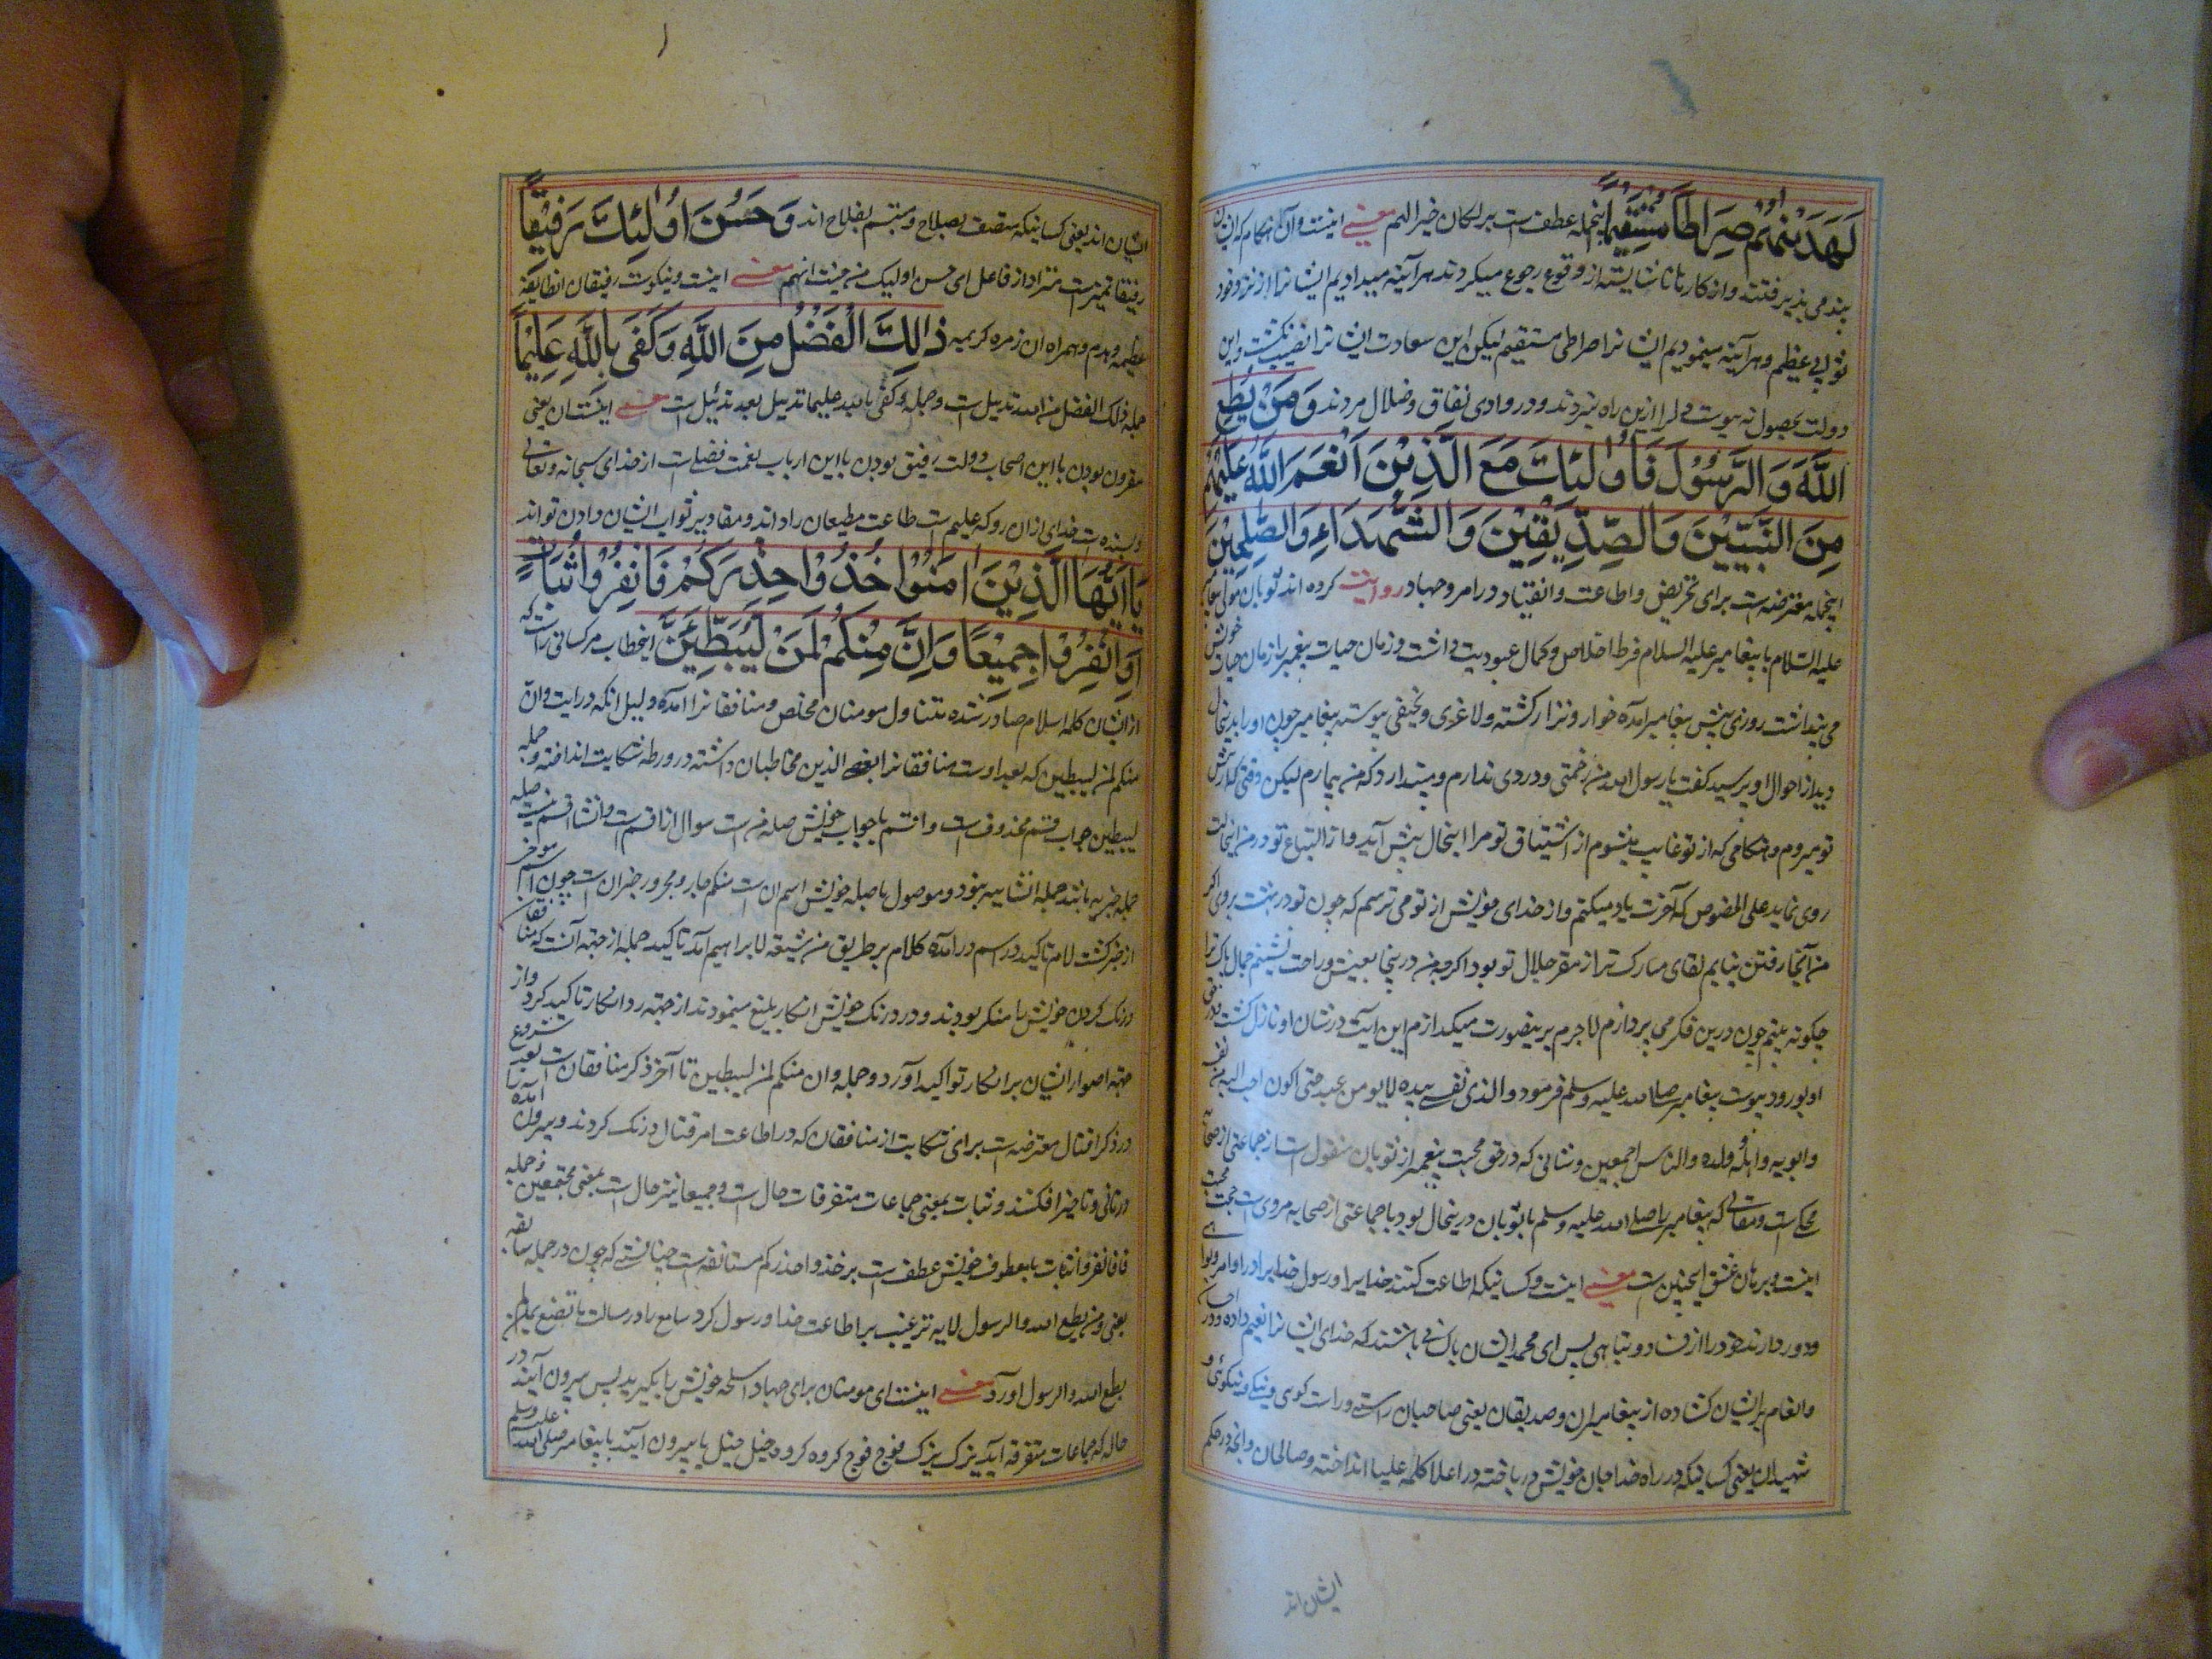 لَهَدَيْنٰهُمْ صِرَاطًا مُسْتَقِيْمًا اینجمله عطفست بر لکان خیرا لهم معنی اینست و آن هنکام که ایشان
پند می پذیرفتند و از کارها ناشایسته از وقوع رجوع میکردند هر آینه میدادیم ایشانرا از نزد خود
ثوابی عظیم و هر آینه مینمودیم ایشانرا صراطی مستقیم لیکن این سعادت ایشانرا نصیب نکشت و این
دولت بحصول نه پیوست و لرا ازین راه نبردند و در وادی نفاق و ضلال مردند وَ مَنْ يُطِعِ
اللّٰهَ وَالرَّسُوْلَ فَاُولٰئِكَ مَعَ الَّذِيْنَ اَنْعَمَ اللّٰهُ عَلَيْهِمْ
مِنَ النَّبِيّٖنَ وَالصِّدِّيْقِيْنَ وَالشُّهَدَاءِ وَالصّٰلِحِيْنَ
اینجمله معترضه است برای تحریض و اطاعت و انقیاد در امر و جهاد روایت کرده اند ثوبان مولی پیغامبر
علیه السلام با پیغامبر علیه السلام فرط اخلاص و کمال عبودیت داشت و زمان حیات پیغمبر از زمان حیات خویش
می پنداشت روزی پیش پیغامبر آمده خوار و نزار کشته و لاغری و نحیفی پیوسته پیغامبر چون او را بدینحال
دید از احوال او پرسید کفت یا رسول الله من زحمتی و دردی ندارم و پندارد که من بیمارم لیکن وقتی که از پیش
تو میروم و هنکامی که از تو غایب میشوم از اشتیاق تو مرا اینحال پیش آید و از التیاع تو در من اینحالت
روی نماید علی الخصوص که آخرت یاد میکنم و از خدای خویش از تو می ترسم که چون تو در بهشت بروی اکر
من آنجا رفتن نیابم لقای مبارک ترا از مقر جلال تو بود اکرچه من در ینجا بعیش و راحت نشینم جمال پاک ترا
چکونه بینم چون درین فکر می پردازم لاجرم برینصورت میکدازم این آیت در شان او نازل کشت و در حق
او بورود پیوست پیغامبر صلی الله علیه و سلم فرمود والذی نفسی بیده لا یومن عبد حتی اکون احب الیه من نفسه
و ابویه و اهله و ولده و الناس اجمعین و شانی که در حق محبت پیغمبر از ثوبان منقول است از جماعتی از صحابه
محکی است و مقالی که پیغامبر را صلی الله علیه و سلم با ثوبان درینحال بود با جماعتی از صحابه مروی است حجت محبت
اینست و برهان عشق اینچنین است معنی اینست و کسانیکه اطاعت کنند خدایرا و رسول خدایرا در اوامر و نواهی
و دور دارند خود را از فساد و تباهی پس ای محمد ایشان با کسانی باشند که خدای ایشانرا نعیم داده و در احسان
و انعام بر ایشان کشاده از پیغامبران و صدیقان یعنی صاحبان راستی و راست کوئی و نیکی و نیکوئی و
شهیدان یعنی کسانیکه در راه خدا جان خویش در باخته در اعلا کلمه علیا انداخته و صالحان و آنچه در حکم
ایشان اند
ایشان اند یعنی کسانیکه متصف بصلاح و متسم بفلاح اند وَحَسُنَ اُولٰئِكَ رَفِيْقًا
رفیقا تمیز است منزاد از فاعل ای حسن اولیک من حیث انهم معنی اینست و نیکوست رفیقان انطایفه
عظیمه و همدم و همراه ان زمره کریمه ذٰلِكَ الْفَضْلُ مِنَ اللّٰهِ وَكَفٰى بِاللّٰهِ عَلِيْمًا
جمله ذلک الفضل من الله تذییل است و جمله و کفی بالله علیما تذییل بعد تذییل است معنی اینست ان یعنی
مقرون بودن با این اصحاب دولت رفیق بودن با این ارباب نعمت فضلی است از خدای سبحانه و تعالی
و بسنده است خدای ازان رو که علیم است طاعت مطیعان را داند و مقادیر ثواب ایشان دادن تواند
يٰاَيُّهَا الَّذِيْنَ اٰمَنُوْا خُذُوْا حِذْرَكُمْ فَانْفِرُوْا ثُبَاتٍ
اَوِ انْفِرُوْا جَمِيْعًا وَاِنَّ مِنْكُمْ لَمَنْ لَيُبَطِّئَنَّ اینخطاب مر کسانی راست که
از ایشان کلمه اسلام صادر شده متناول مومنان مخلص و منافقانرا آمده دلیل انکه در ایت و ان
منکم لمن لیبطئن که بعد اوست منافقانرا بعض الذین مخاطبان داشته در ورطه شکایت انداخته و جمله
لیبطئن جواب قسم محذوف است و اقسم با جواب خویش صله من است سوال از اقسم است و انشا اقسم نیست صله
جمله خبریه باشد جمله انشاییه نبود و موصول با صله خویش اسم ان است منکم جار و مجرور خبر ان است چون اسم موخر
از خبر کشت لام تاکید در اسم در آمده کلام بر طریق من شیعته لابراهیم آمد تاکید جمله از جهته آنست که منافقان
درنک کردن خویش را منکر بودند و در درنک خویش انکار بلیغ مینمودند از جهته رد انکار تاکید کرد و از
جهته اصرار ایشان بر انکار تواکید آورد و جمله و ان منکم لمن لیبطئن تا آخر ذکر منافقان است بعد شروع
در ذکر اقتال معترضه است برای شکایت از منافقان که در اطاعت امر قتال درنک کردند و بیرون آمدن را
در تانی و تاخیر افکنند و ثبات بمعنی جماعات متفرقات حال است و جمیعا نیز حال است بمعنی مجتمعین و جمله
فانفروا ثبات با معطوف خویش عطف است بر خذوا حذرکم مستانفه است چنانستی که چون در جمله سابقه
یعنی و من یطع الله و الرسول لایه ترغیب بر اطاعت خدا و رسول کرد سامع را در سالت
یطع الله و الرسول اورا معنی اینست ای مومنان برای جهاد اسلحه خویش را بکیرید پس بیرون آیند در
حال که جماعات متفرقه اید بزرک بزرک فوج فوج کروه کروه خیل خیل یا بیرون ایند با پیغامبر صلی الله علیه وسلم